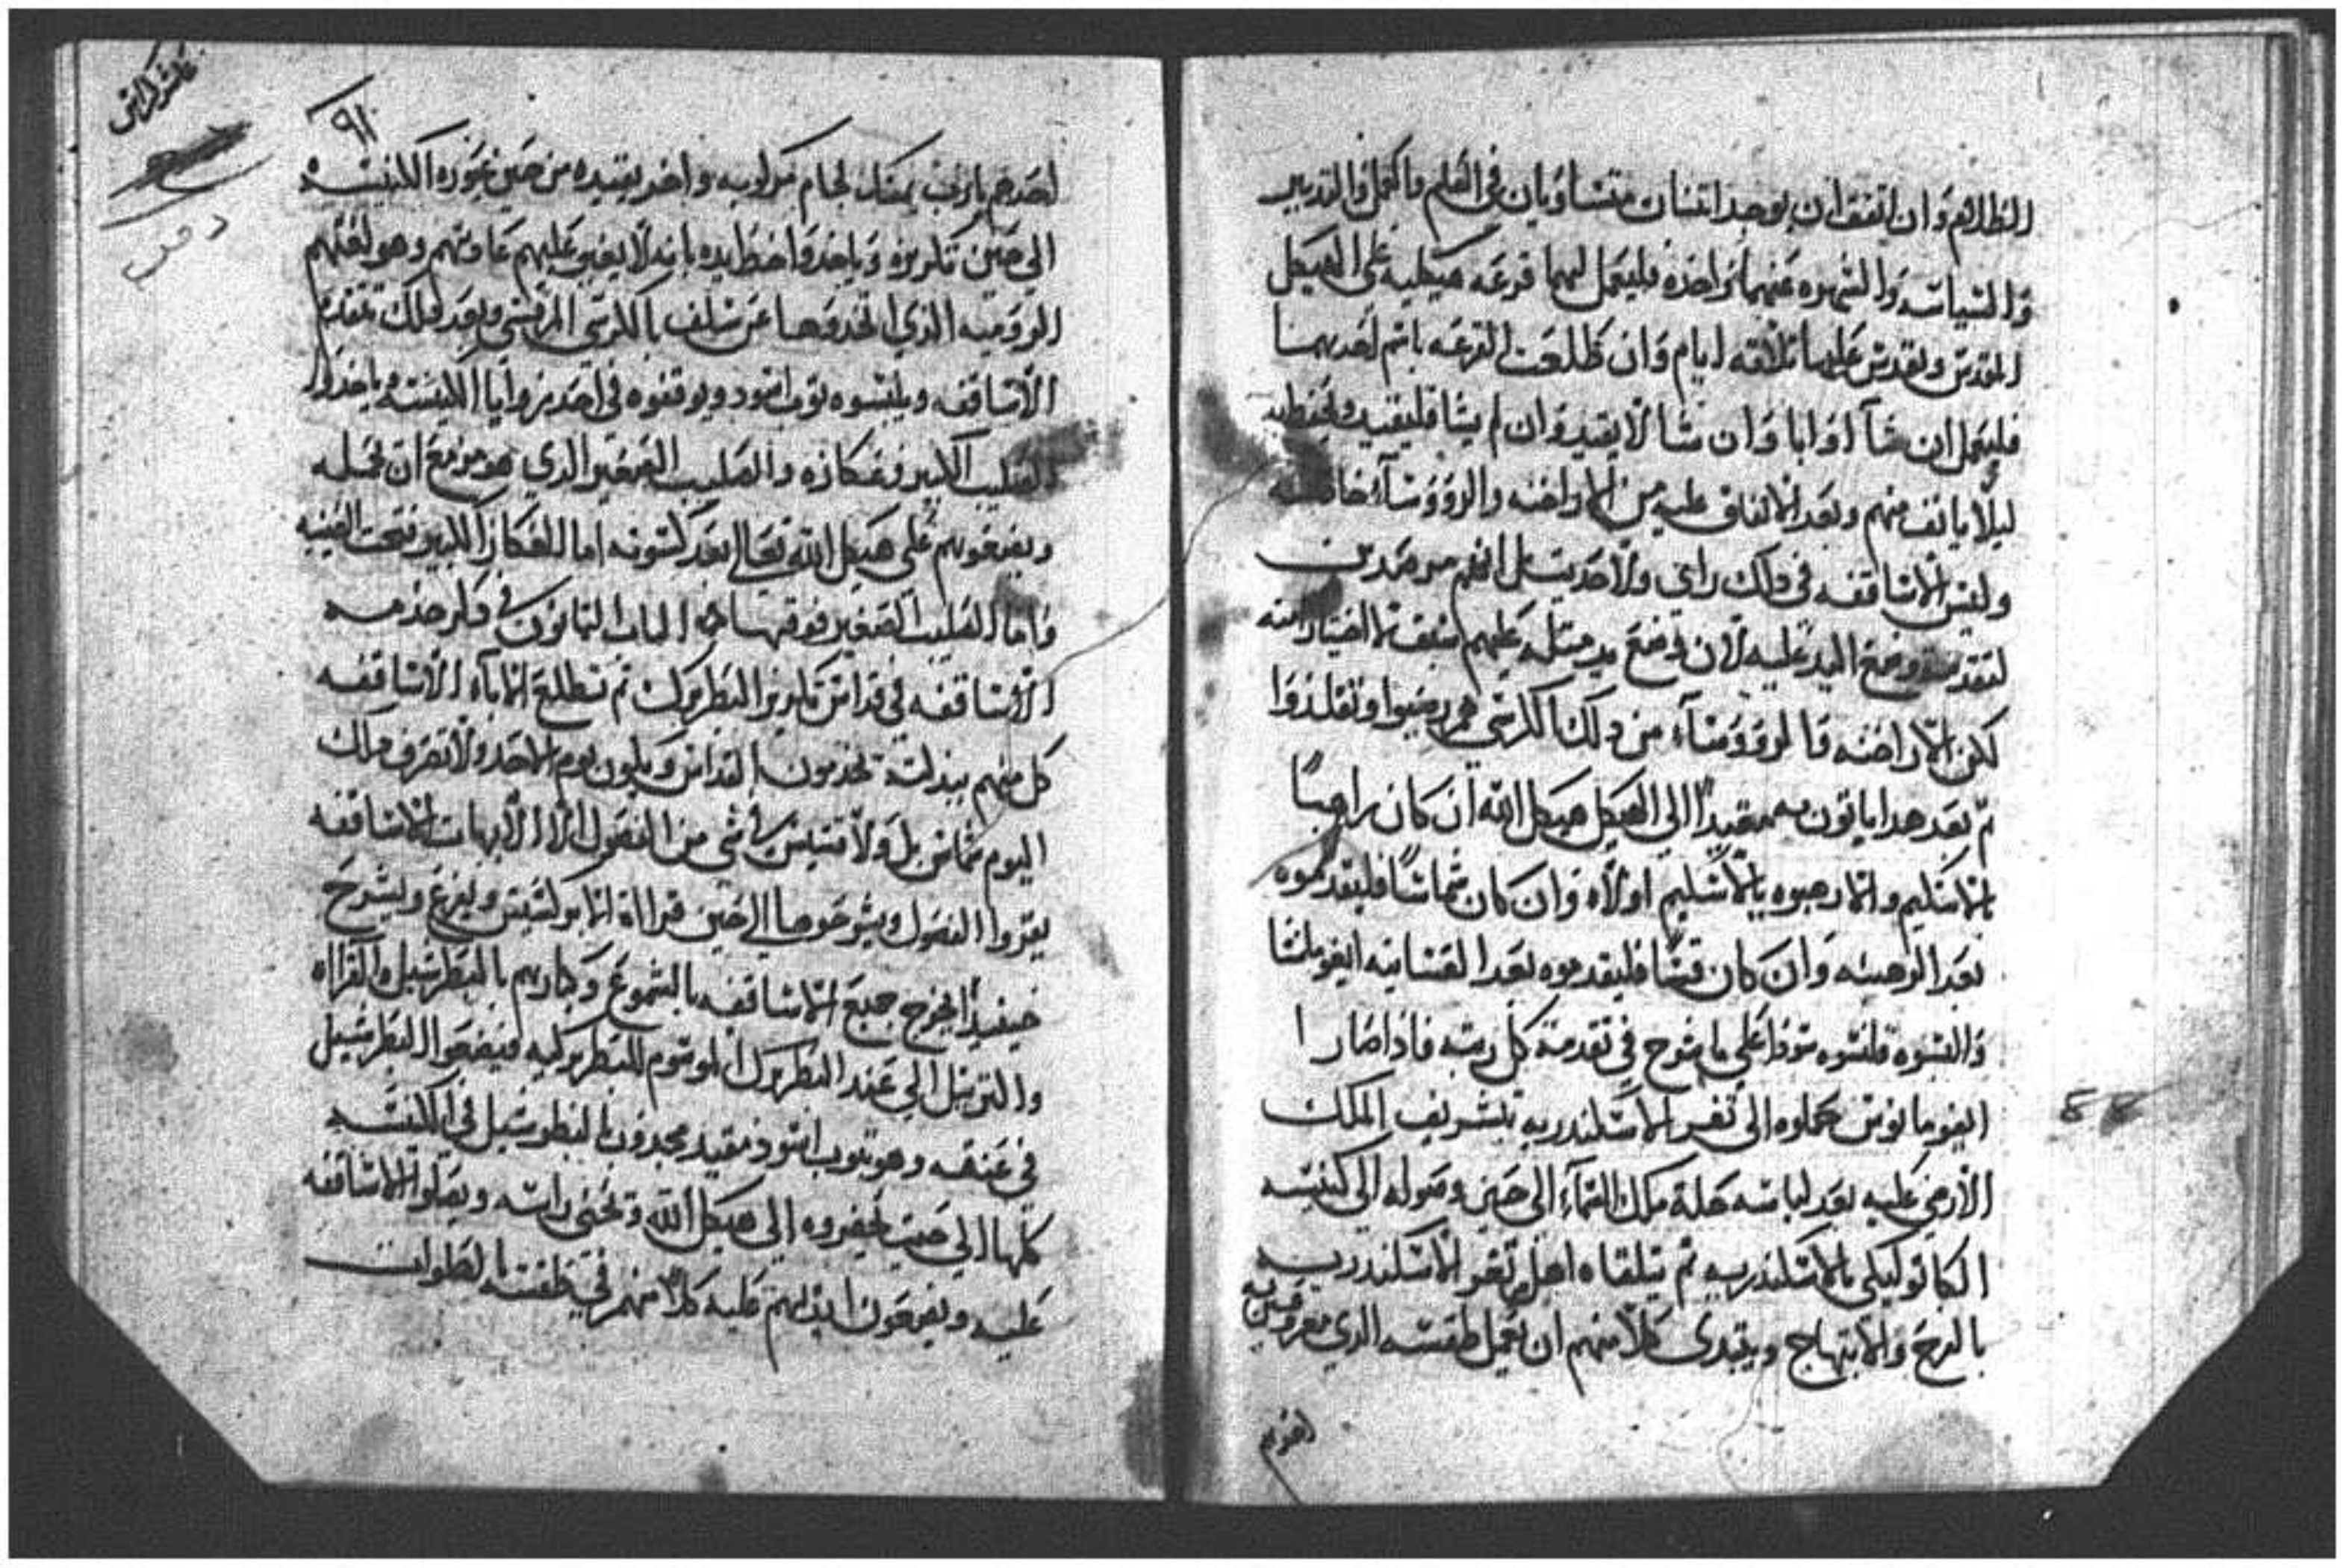 الظلام وان اتفق ان يوجد اتنان متساويان في العلم والعمل والتدبير
والسياسه والشهره عنهما واحده فليعمل لهما قرعه هيكليه على الهيكل
المقدس ويقدس عليها تلاتة ايام وان طلعت القرعه باسم احدهما
فليعمل ان شآ او ابا وان شا لا يقيد وان لم يشا فليقيد ويحتفظ به
ليلا يانف منهم وبعد الاتفاق عليه من الاراخنه والروؤسآء خاصه
وليس للاساقفه في دلك راي ولا احد يسل انهم من
لتقدمته ووضع اليد عليه لان وضع يد مسله عليهم اسبق
لكن الاراخنه والروؤسآء من دلك الكرسي هم رضيوا وتقلدوا
تم بعد هدا ياتون به مقيداً الي الهيكل هيكل الله ان كان راهباً
بالاسكيم والا رهبوه بالاسكيم اولاً وان كان شماساً فليقدموه
بعد الرهبنه وان كان قساً فليقدموه بعد القسانيه ايغومانسا
والبسوه قلنسوه سودا على ما شرح في تقدمة كل رتبه فاذا صار
ايغومانوس حملوه الى تغر الاسكندريه بتشريف الملك
الارضي عليه بعد لباسه حلة ملك السمآء الى حين وصوله الى كنيسه
الكاتوليكي بالاسكندريه تم يتلقاه اهل تغر الاسكندريه
بالفرح والابتهاج ويبتدى كلا منهم ان يعمل طقسه الدي معروفين به
احدهم
٩١
احدهم يمسك لجام مركوبه واخر يقيده من حين عبوره الكنيسه
الى حين تكريزه وياخدوا خط يده بانه لا يغير عليهم عاداتهم وهو لغتهم
الروميه الدي اتخدوها عن سلف بالكرسي المرقسي وبعد دلك تتقدم
الاساقفه ويلبسوه توب اسود ويوقفوه في احد زوايا الكنيسه وياخدوا
الصليب الكبير وعكازه والصليب الصغير الدي هو مزمع ان يحمله
ويضعوهم على هيكل الله تعالى بعد كسوته اما العكاز الكبير فتحت الصينيه
واما الصليب الصغير فوقها الباب التانون في دكر خدمه
الاساقفه في قداس تكريز البطريرك تم تطلع الابآء الاساقفه
كل منهم ببدلته يخدمون القداس ويكون يوم الاحد ولا تصرف دلك
اليوم شماس بل ولا قسيس في شي من الفصول الا الابهات الاساقفه
يقروا الفصول ويشرحوها الي حين قراة الابركسيس ويفرغ ويشرح
حينيداً يخرج جميع الاساقفه بالشموع وكبارهم بالبطرشيل والقراه
والترتيل الي عند البطريرك الموسوم للبطريركيه فيضعوا البطرشيل
في عنقه وهو بتوب اسود مقيد مجدوب بالبطرشيل في الكنيسه
كلها الي حيت يحضروه الي هيكل الله وتحني راسه ويصلوا الاساقفه
عليه ويضعون ايديهم عليه كلا منهم في طقسه الصلوات